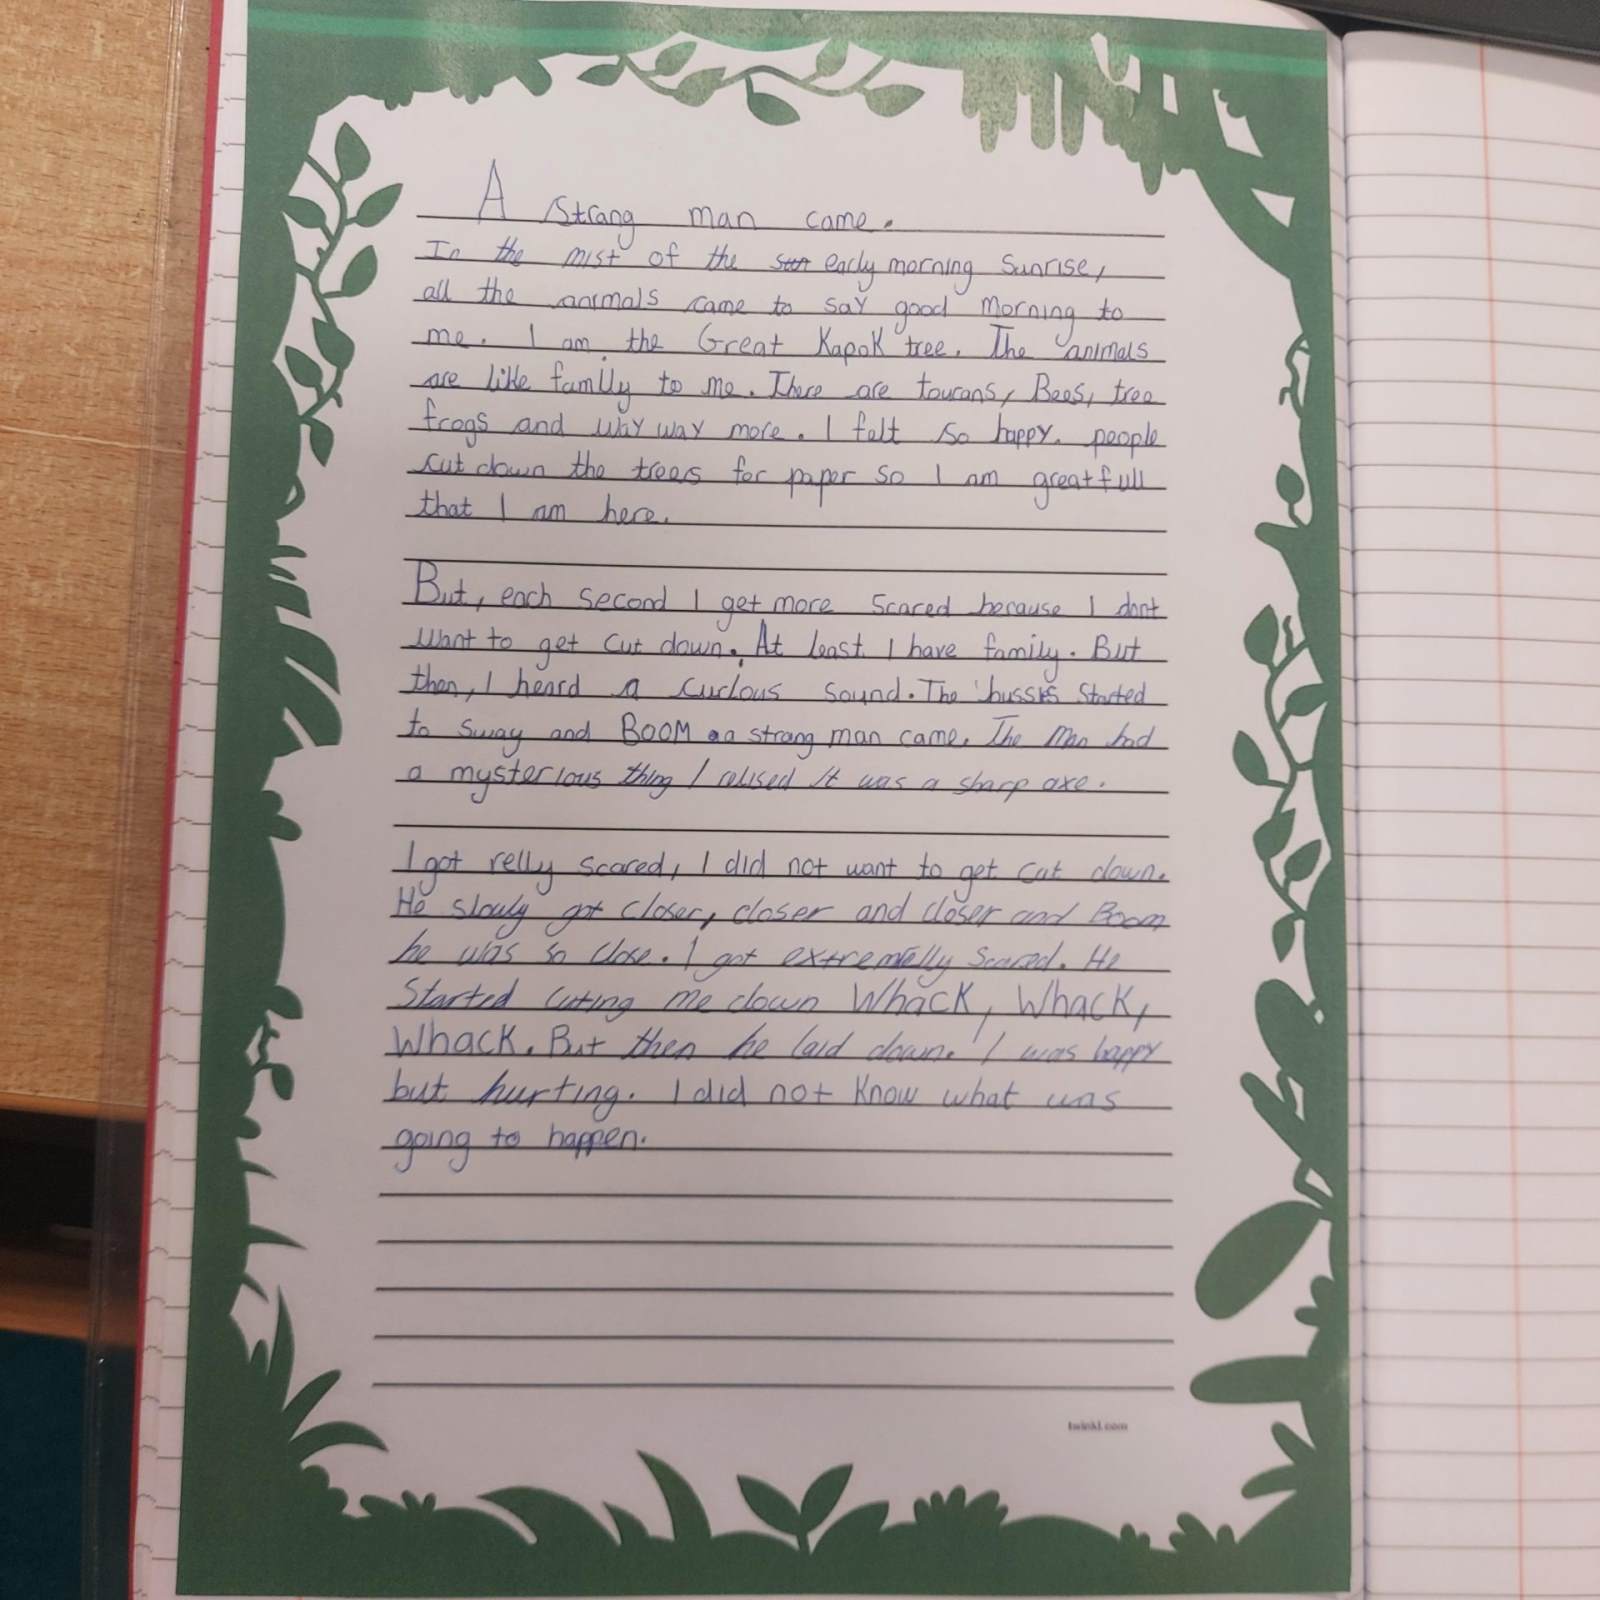 A Strang man came.
In the mist of the sun early morning Sunrise,
all the animals came to say good morning to
me. I am the Great Kapok tree. The animals
are like family to me. There are toucans, Bees, tree
frogs and way way more. I felt so happy. people
cut down the trees for paper so I am greatfull
that I am here.
But, each second I get more scared because I dont
want to get cut down. At least I have family. But
then, I heard a curious sound. The bussis started
to sway and BOOM a strang man came. The man had
a mysterious thing I relised it was a sharp axe.
I got relly scared, I did not want to get cut down.
He slouly got closer, closer and closer and Boom
he was so close. I got extremelly scared. He
started cuting me down Whack, Whack,
Whack. But then he laid down. I was happy
but hurting. I did not know what was
going to happen.
twinkl.com